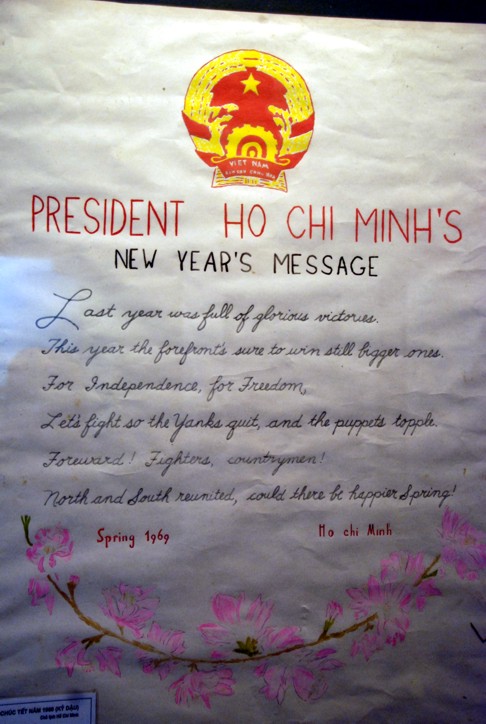 VIET NAM
PRESIDENT HO CHI MINH'S
NEW YEAR'S MESSAGE
Last year was full of glorious victories.
This year the forefront's sure to win still bigger ones.
For Independence, for Freedom,
Let's fight so the Yanks quit, and the puppets topple.
Foreward! Fighters, countrymen!
North and South reunited, could there be happier Spring!
Spring 1969
Ho chi Minh
CHÚC TẾT NĂM 1969 (KỶ DẬU)